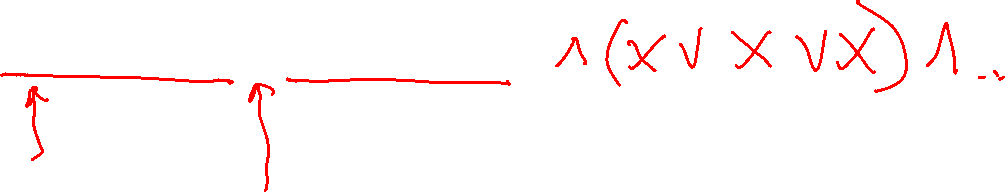 ∧ (x ∨ x ∨ x) ∧ ...